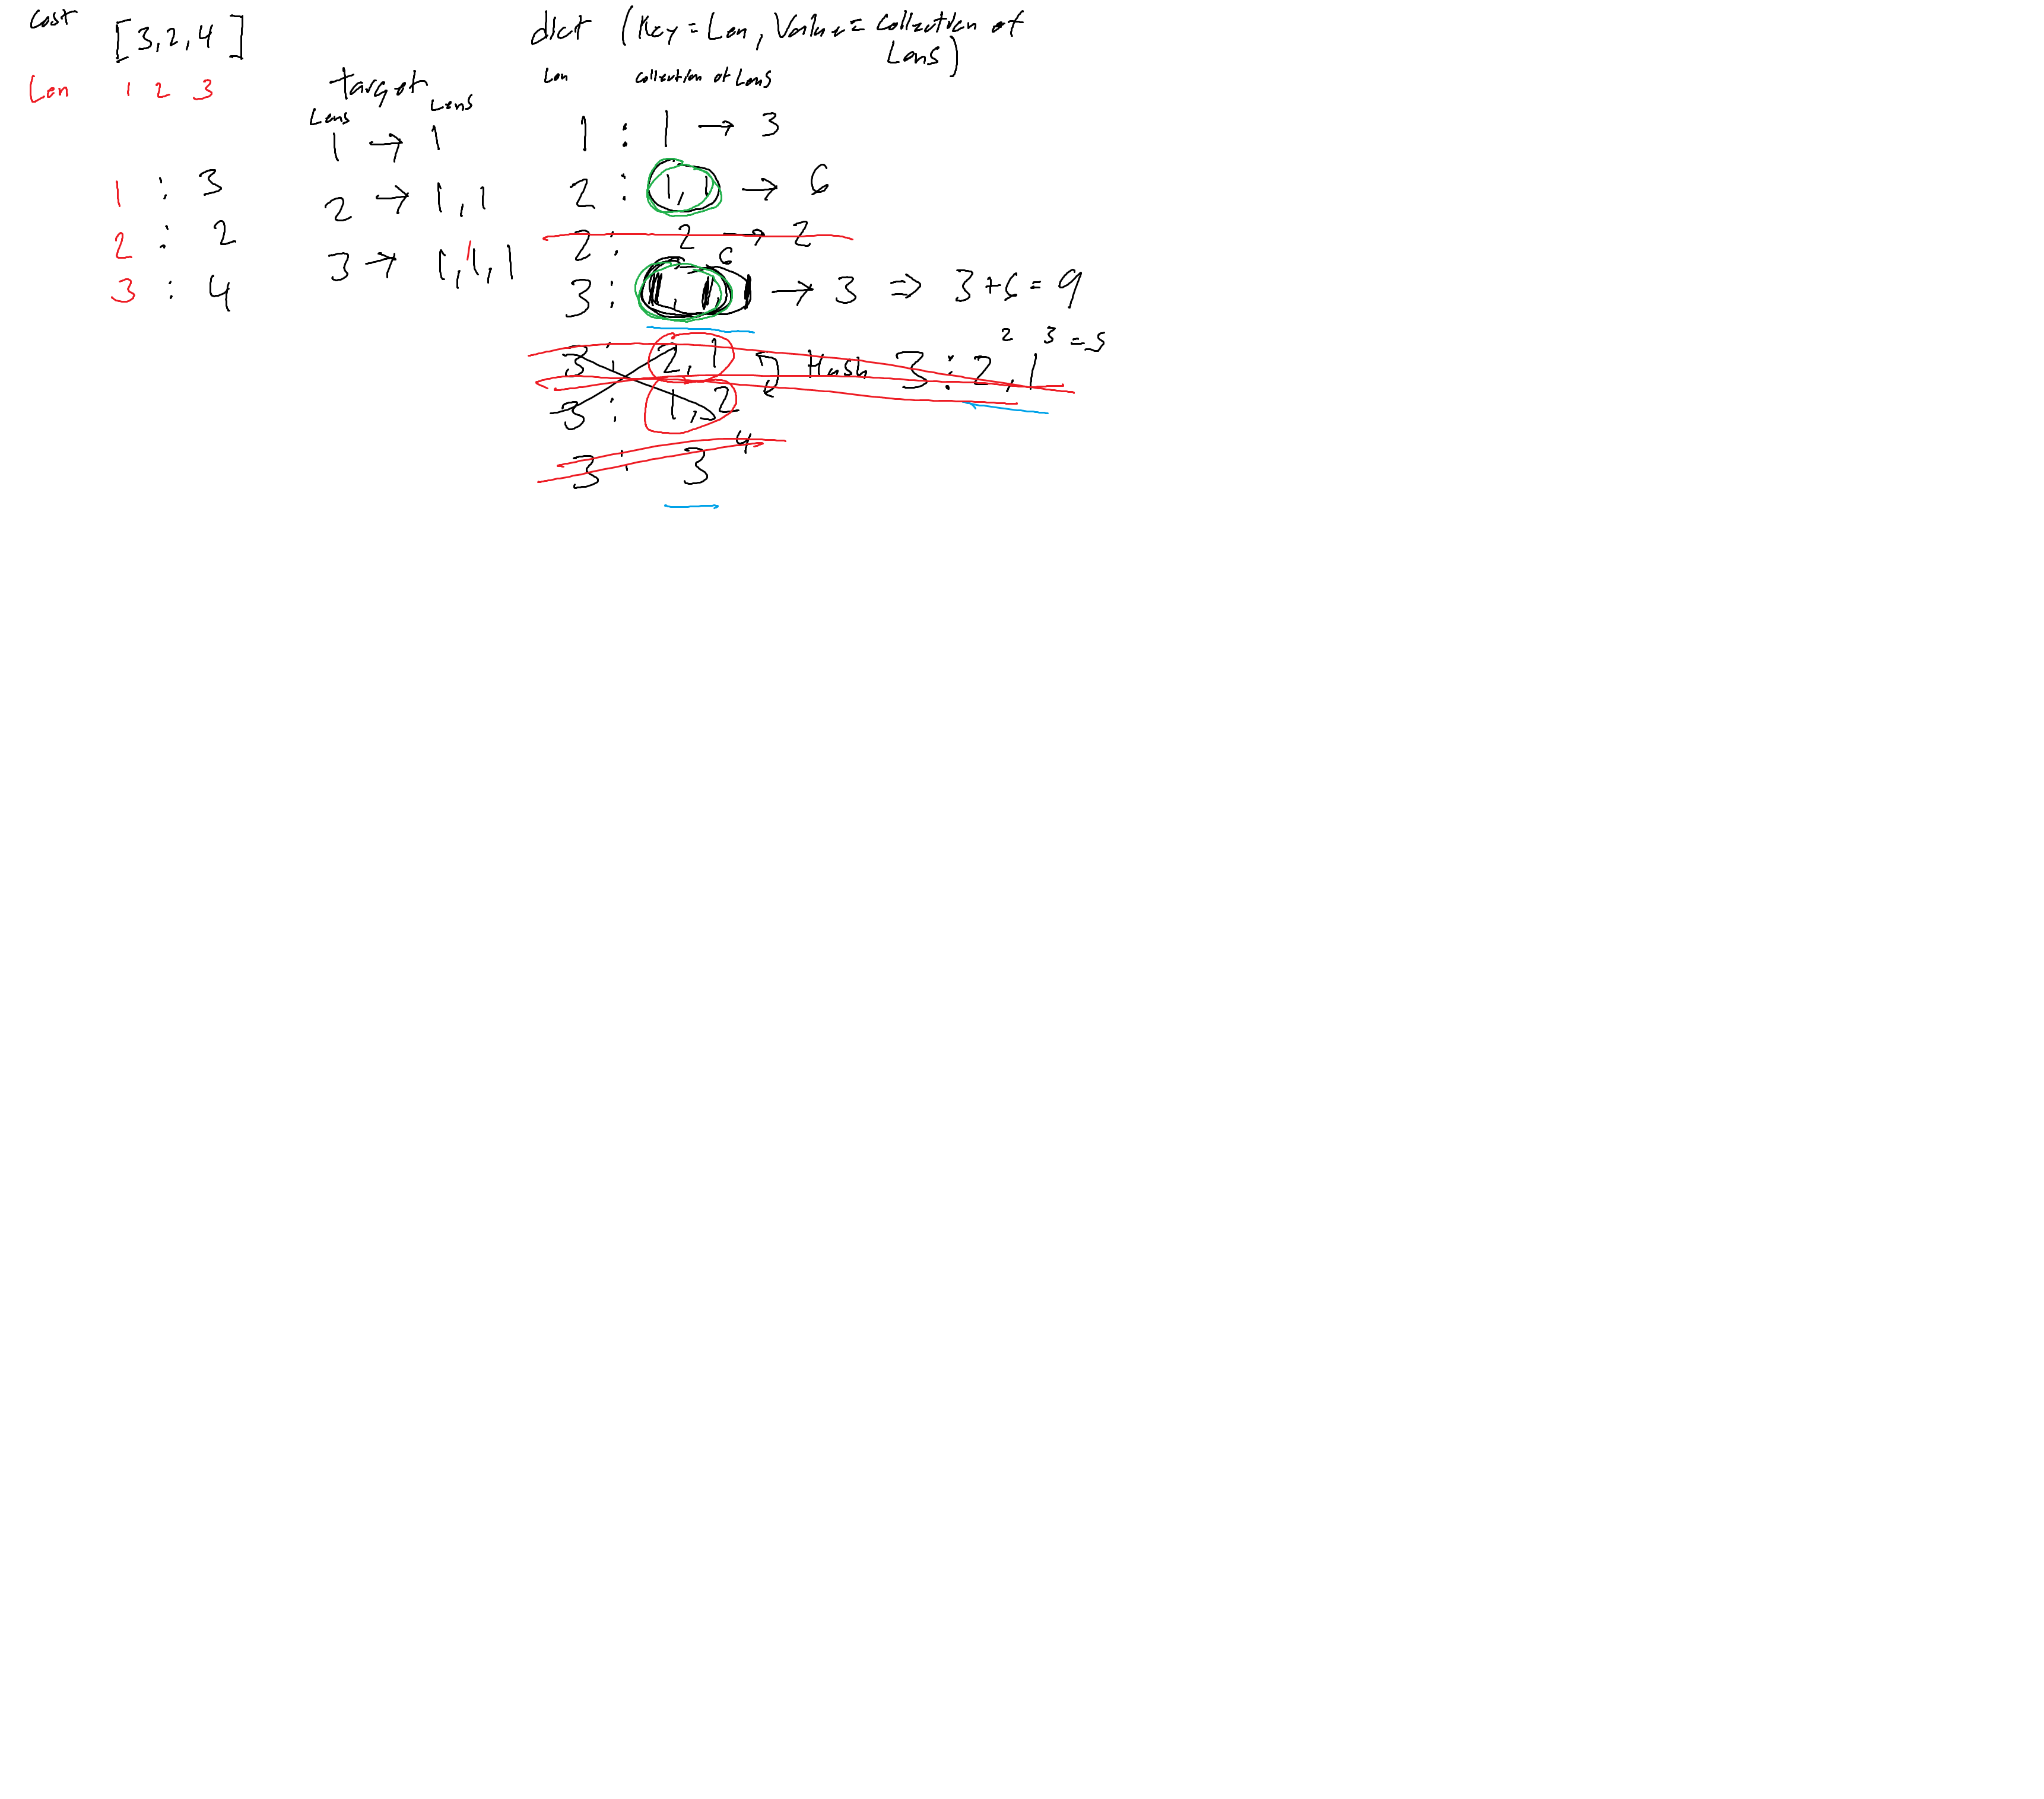 cost [3,2,4]
Len 1 2 3
1 : 3
2 : 2
3 : 4
target
Lens Lens
1 → 1
2 → 1,1
3 → 1,1,1
dict (Key = Len, Value = collection of
Lens)
Len collection of Lens
1 : 1 → 3
2 : 1,1 → 6
2 : 2 → 2
6
3 : 1,1,1 → 3 ⇒ 3+6=9
3 : 2,1 Hash 3 : 2,1
2 3 = 5
3 : 1,2
3 : 3 4